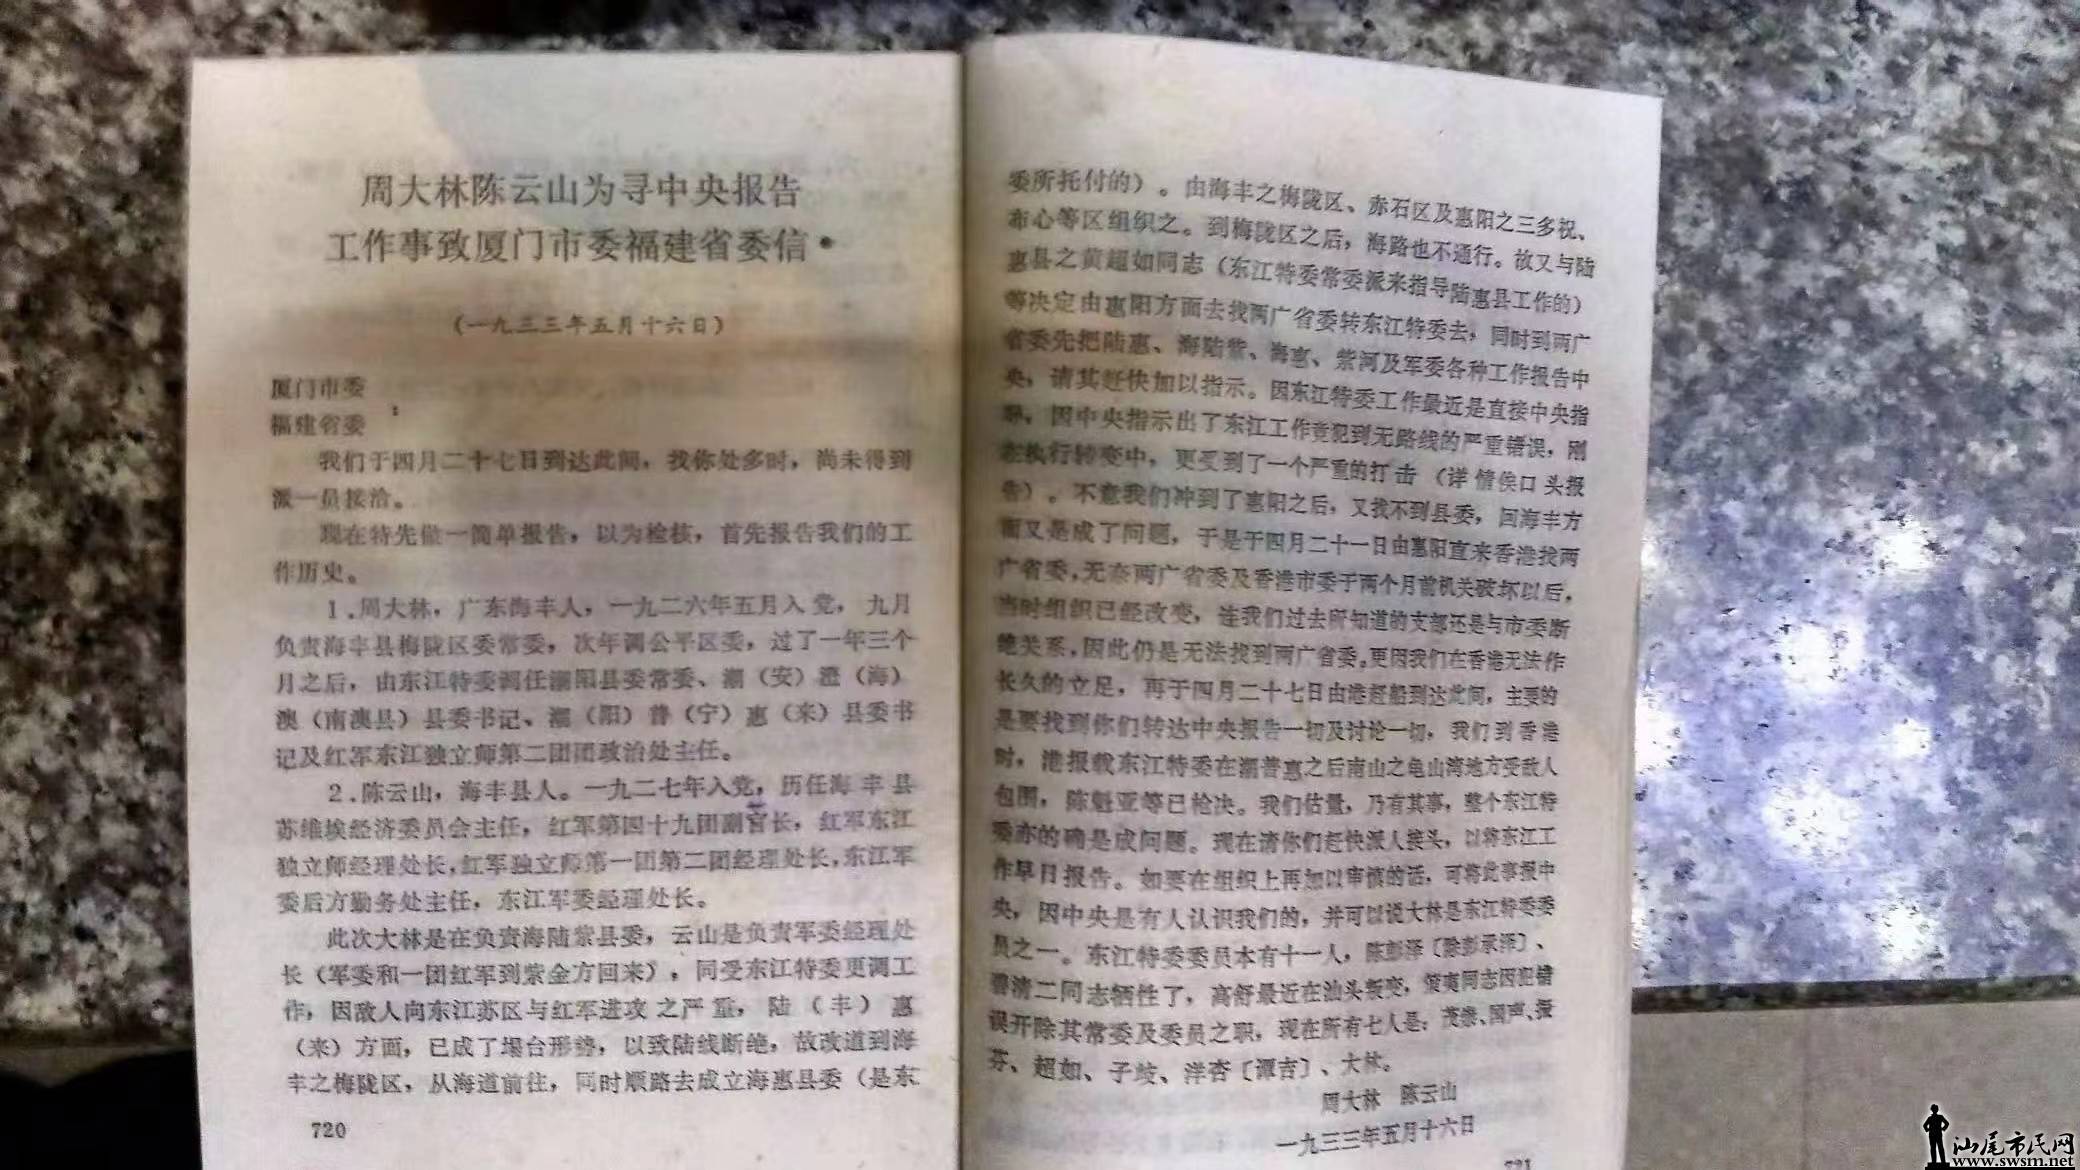 周大林陈云山为寻中央报告
工作事致厦门市委福建省委信•
(一九三三年五月十六日)
厦门市委
:
福建省委
我们于四月二十七日到达此间，找你处多时，尚未得到
派一员接洽。
现在特先做一简单报告，以为检核，首先报告我们的工
作历史。
1.周大林，广东海丰人，一九二六年五月入党，九月
负责海丰县梅陇区委常委，次年调公平区委，过了一年三个
月之后，由东江特委调任潮阳县委常委、潮（安）澄（海）
澳（南澳县）县委书记、潮（阳）普（宁）惠（来）县委书
记及红军东江独立师第二团团政治处主任。
2.陈云山，海丰县人。一九二七年入党，历任海丰县
苏维埃经济委员会主任，红军第四十九团副官长，红军东江
独立师经理处长，红军独立师第一团第二团经理处长，东江军
委后方勤务处主任，东江军委经理处长。
此次大林是在负责海陆紫县委，云山是负责军委经理处
长（军委和一团红军到紫金方回来），同受东江特委更调工
作，因敌人向东江苏区与红军进攻之严重，陆（丰）惠
（来）方面，已成了塌台形势，以致陆线断绝，故改道到海
丰之梅陇区，从海道前往，同时顺路去成立海惠县委（是东
720
委所托付的）。由海丰之梅陇区、赤石区及惠阳之三多祝、
布心等区组织之。到梅陇区之后，海路也不通行。故又与陆
惠县之黄超如同志（东江特委常委派来指导陆惠县工作的）
等决定由惠阳方面去找两广省委转东江特委去，同时到两广
省委先把陆惠、海陆紫、海惠、紫河及军委各种工作报告中
央，请其赶快加以指示。因东江特委工作最近是直接中央指
导，因中央指示出了东江工作竟犯到无路线的严重错误，刚
在执行转变中，更受到了一个严重的打击（详情俟口头报
告）。不意我们冲到了惠阳之后，又找不到县委，回海丰方
面又是成了问题，于是于四月二十一日由惠阳直来香港找两
广省委，无奈两广省委及香港市委于两个月前机关破坏以后，
当时组织已经改变，连我们过去所知道的支部还是与市委断
绝关系，因此仍是无法找到两广省委。更因我们在香港无法作
长久的立足，再于四月二十七日由港赶船到达此间，主要的
是要找到你们转达中央报告一切及讨论一切，我们到香港
时，港报载东江特委在潮普惠之后南山之龟山湾地方受敌人
包围，陈魁亚等已枪决。我们估量，乃有其事，整个东江特
委亦的确是成问题。现在请你们赶快派人接头，以将东江工
作早日报告。如要在组织上再加以审慎的话，可将此事报中
央，因中央是有人认识我们的，并可以说大林是东江特委委
员之一。东江特委委员本有十一人，陈彭泽〔陈彭承泽〕、
碧清二同志牺牲了，高舒最近在汕头叛变，策夷同志因犯错
误开除其常委及委员之职，现在所有七人是：茂崇、国声、振
芬、超如、子岐、洋杏〔潭吉〕、大林。
周大林 陈云山
一九三三年五月十六日
721
汕尾市民网
www.swsm.net